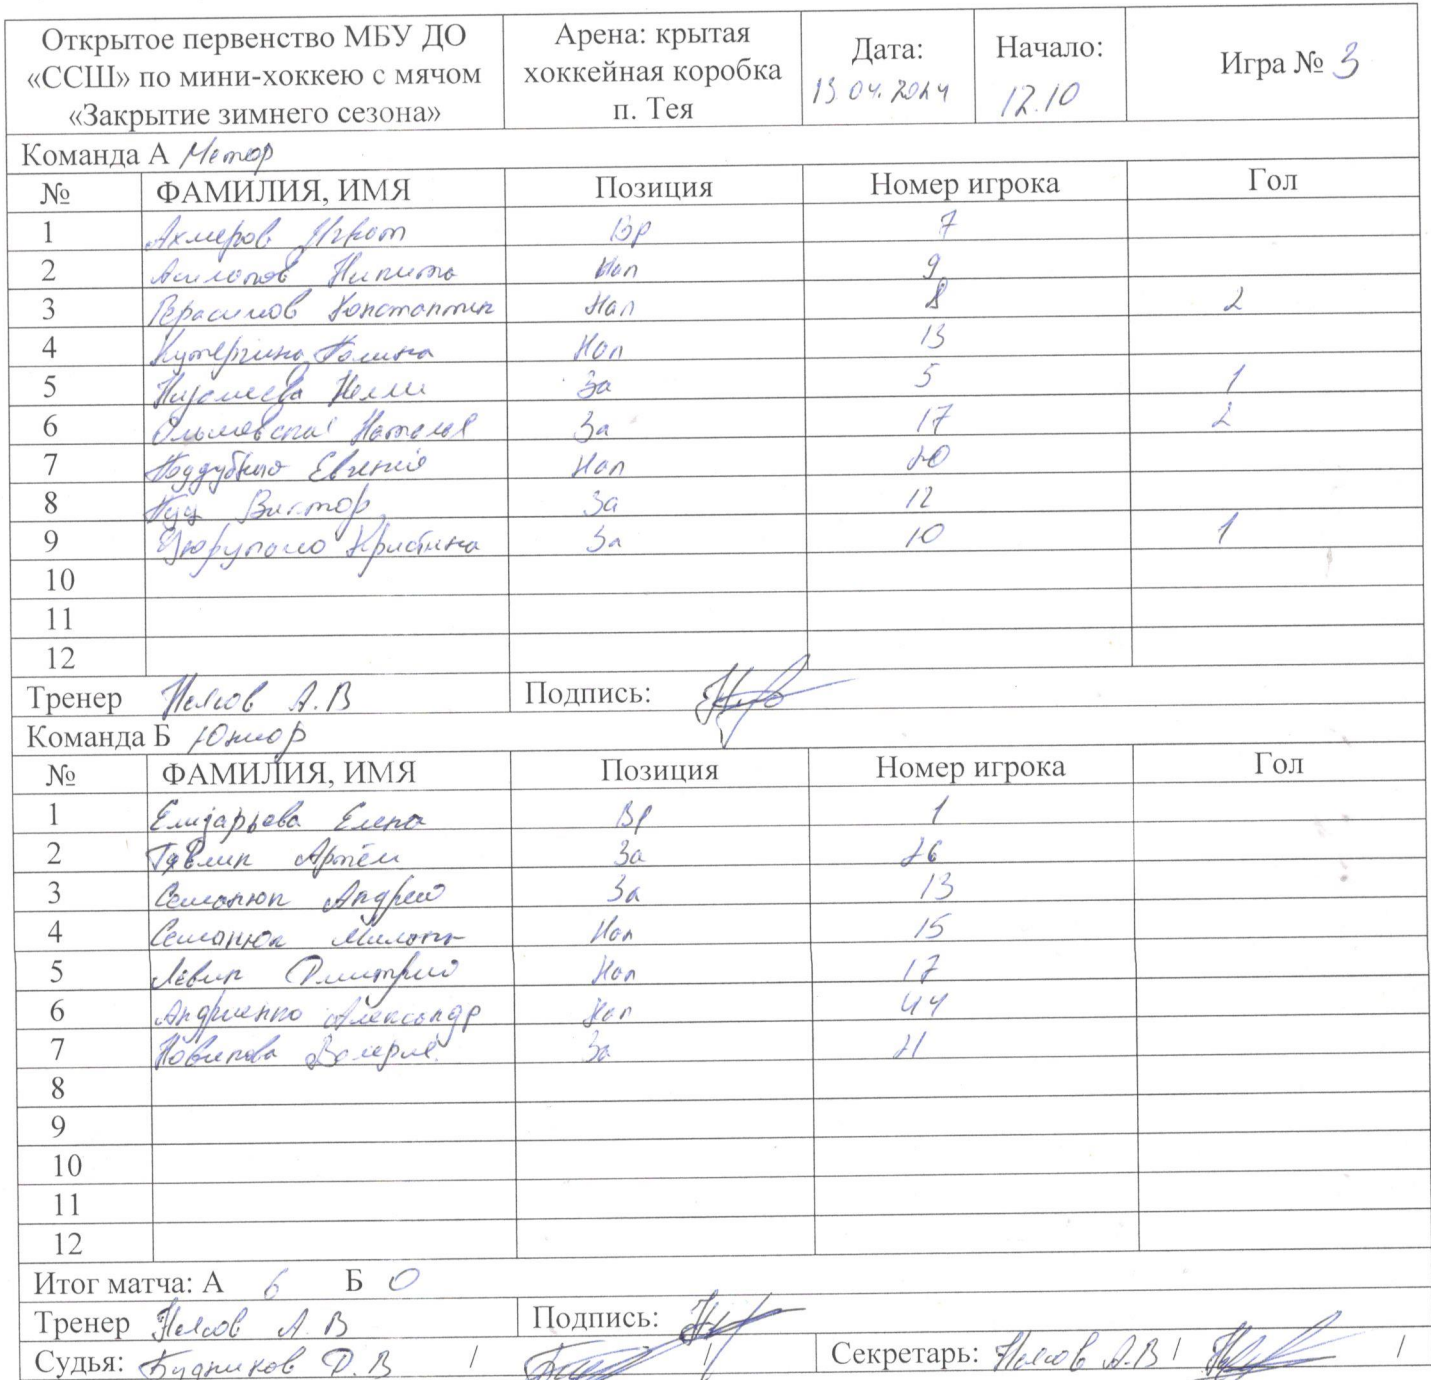 Открытое первенство МБУ ДО «ССШ» по мини-хоккею с мячом «Закрытие зимнего сезона» Арена: крытая хоккейная коробка п. Тея Дата: 13 04. 2024 Начало: 12.10 Игра № 3
Команда А Метеор
№ ФАМИЛИЯ, ИМЯ Позиция Номер игрока Гол
1 Ахмеров Вр 7
2 Никита Нап 9
3 Герасимов Константин Нап 8 2
4 Кутергина Полина Нап 13
5 Нелли За 5 1
6 Наталья За 17 2
7 Поддубный Евгений Нап
8 Виктор За 12
9 Кристина За 10 1
10
11
12
Тренер А.В Подпись:
Команда Б Юниор
№ ФАМИЛИЯ, ИМЯ Позиция Номер игрока Гол
1 Елизарьева Елена Вр 1
2 Артём За 26
3 Семанюк Андрей За 13
4 Семанюк Нап 15
5 Левин Дмитрий Нап 17
6 Андриенко Александр Нап 44
7 Новикова Валерия За 21
8
9
10
11
12
Итог матча: А 6 Б 0
Тренер А.В Подпись:
Судья: Будников Д.В / / Секретарь: А.В / /